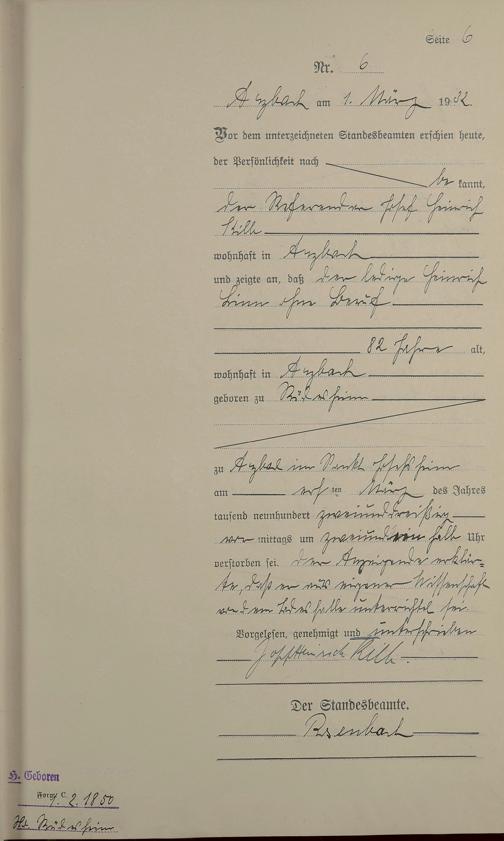 Seite 6
Nr. 6
Arzbach am 1. März 1932
Vor dem unterzeichneten Standesbeamten erschien heute,
der Persönlichkeit nach
be kannt,
der Josef Heinrich
wohnhaft in Arzbach
und zeigte an, daß der ledige Heinrich
Linn ohne Beruf
82 Jahre alt,
wohnhaft in Arzbach
geboren zu Rüdesheim
zu Arzbach im Sankt Josefsheim
am ersten März des Jahres
tausend neunhundert zweiunddreißig
vor mittags um zweiundeinhalb Uhr
verstorben sei. Der Anzeigende erklär-
te, daß er aus eigener Wissenschaft
von dem Todesfalle unterrichtet sei.
Vorgelesen, genehmigt und unterschrieben
Der Standesbeamte.
H. Geboren
1. 2. 1850
Rüdesheim